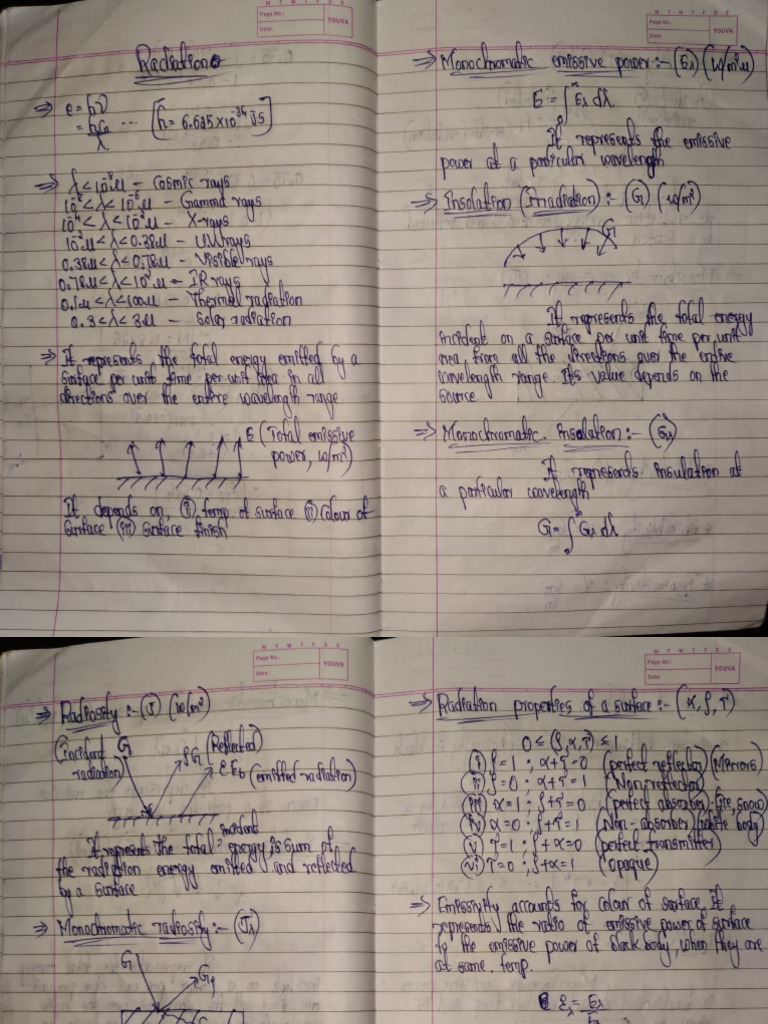 M T W T F S S
Page No.:
Date:
YOUVA
Radiation
⇒ e = hν
= hc/λ ... [h = 6.625×10⁻³⁴ Js]
⇒ λ < 10⁻⁸μ - Cosmic rays
< λ < - Gamma rays
< λ < 10⁻²μ - X-rays
10⁻²μ < λ < 0.38μ - UV rays
0.38μ < λ < 0.78μ - Visible rays
0.78μ < λ < 10²μ - IR rays
0.1μ < λ < 100μ - Thermal radiation
0.3 < λ < 3μ - Solar radiation
⇒ It represents the total energy emitted by a
surface per unit time per unit area in all
directions over the entire wavelength range
E (Total emissive
power, w/m²)
It depends on, (i) temp of surface (ii) Colour of
surface (iii) surface finish
M T W T F S S
Page No.:
Date:
YOUVA
⇒ Monochromatic emissive power :- (Eλ) (w/m²μ)
E = ∫₀^∞ Eλ dλ
It represents the emissive
power at a particular wavelength
⇒ Insolation (Irradiation) :- (G) (w/m²)
G
It represents the total energy
incident on a surface per unit time per unit
area, from all the directions over the entire
wavelength range. Its value depends on the
source
⇒ Monochromatic Insolation :- (Gλ)
It represents insulation at
a particular wavelength
G = ∫₀^∞ Gλ dλ
M T W T F S S
Page No.:
Date:
YOUVA
⇒ Radiosity :- (J) (w/m²)
(incident G
radiation)
ρG (Reflected)
εEb (emitted radiation)
It represents the total incident energy, is sum of
the radiation energy emitted and reflected
by a surface
⇒ Monochromatic radiosity :- (Jλ)
G
M T W T F S S
Page No.:
Date:
YOUVA
⇒ Radiation properties of a surface :- (α, ρ, τ)
0 ≤ (ρ, α, τ) ≤ 1
(i) ρ = 1 ; α+τ = 0 (perfect reflector) (Mirrors)
(ii) ρ = 0 ; α+τ = 1 (Non-reflector)
(iii) α = 1 ; ρ+τ = 0 (perfect absorber)
(iv) α = 0 ; ρ+τ = 1 (Non-absorber) (white body)
(v) τ = 1 ; ρ+α = 0 (perfect transmitter)
(vi) τ = 0 ; ρ+α = 1 (opaque)
⇒ Emissivity accounts for colour of surface. It
represents the ratio of emissive power of surface
to the emissive power of black body, when they are
at same temp.
ελ = Eλ